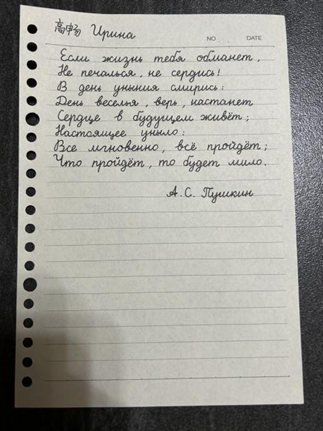 高申易 Ирина
NO DATE
Если жизнь тебя обманет,
Не печалься, не сердись!
В день уныния смирись:
День веселья, верь, настанет
Сердце в будущем живёт;
Настоящее уныло:
Все мгновенно, всё пройдёт;
Что пройдёт, то будет мило.
А.С. Пушкин